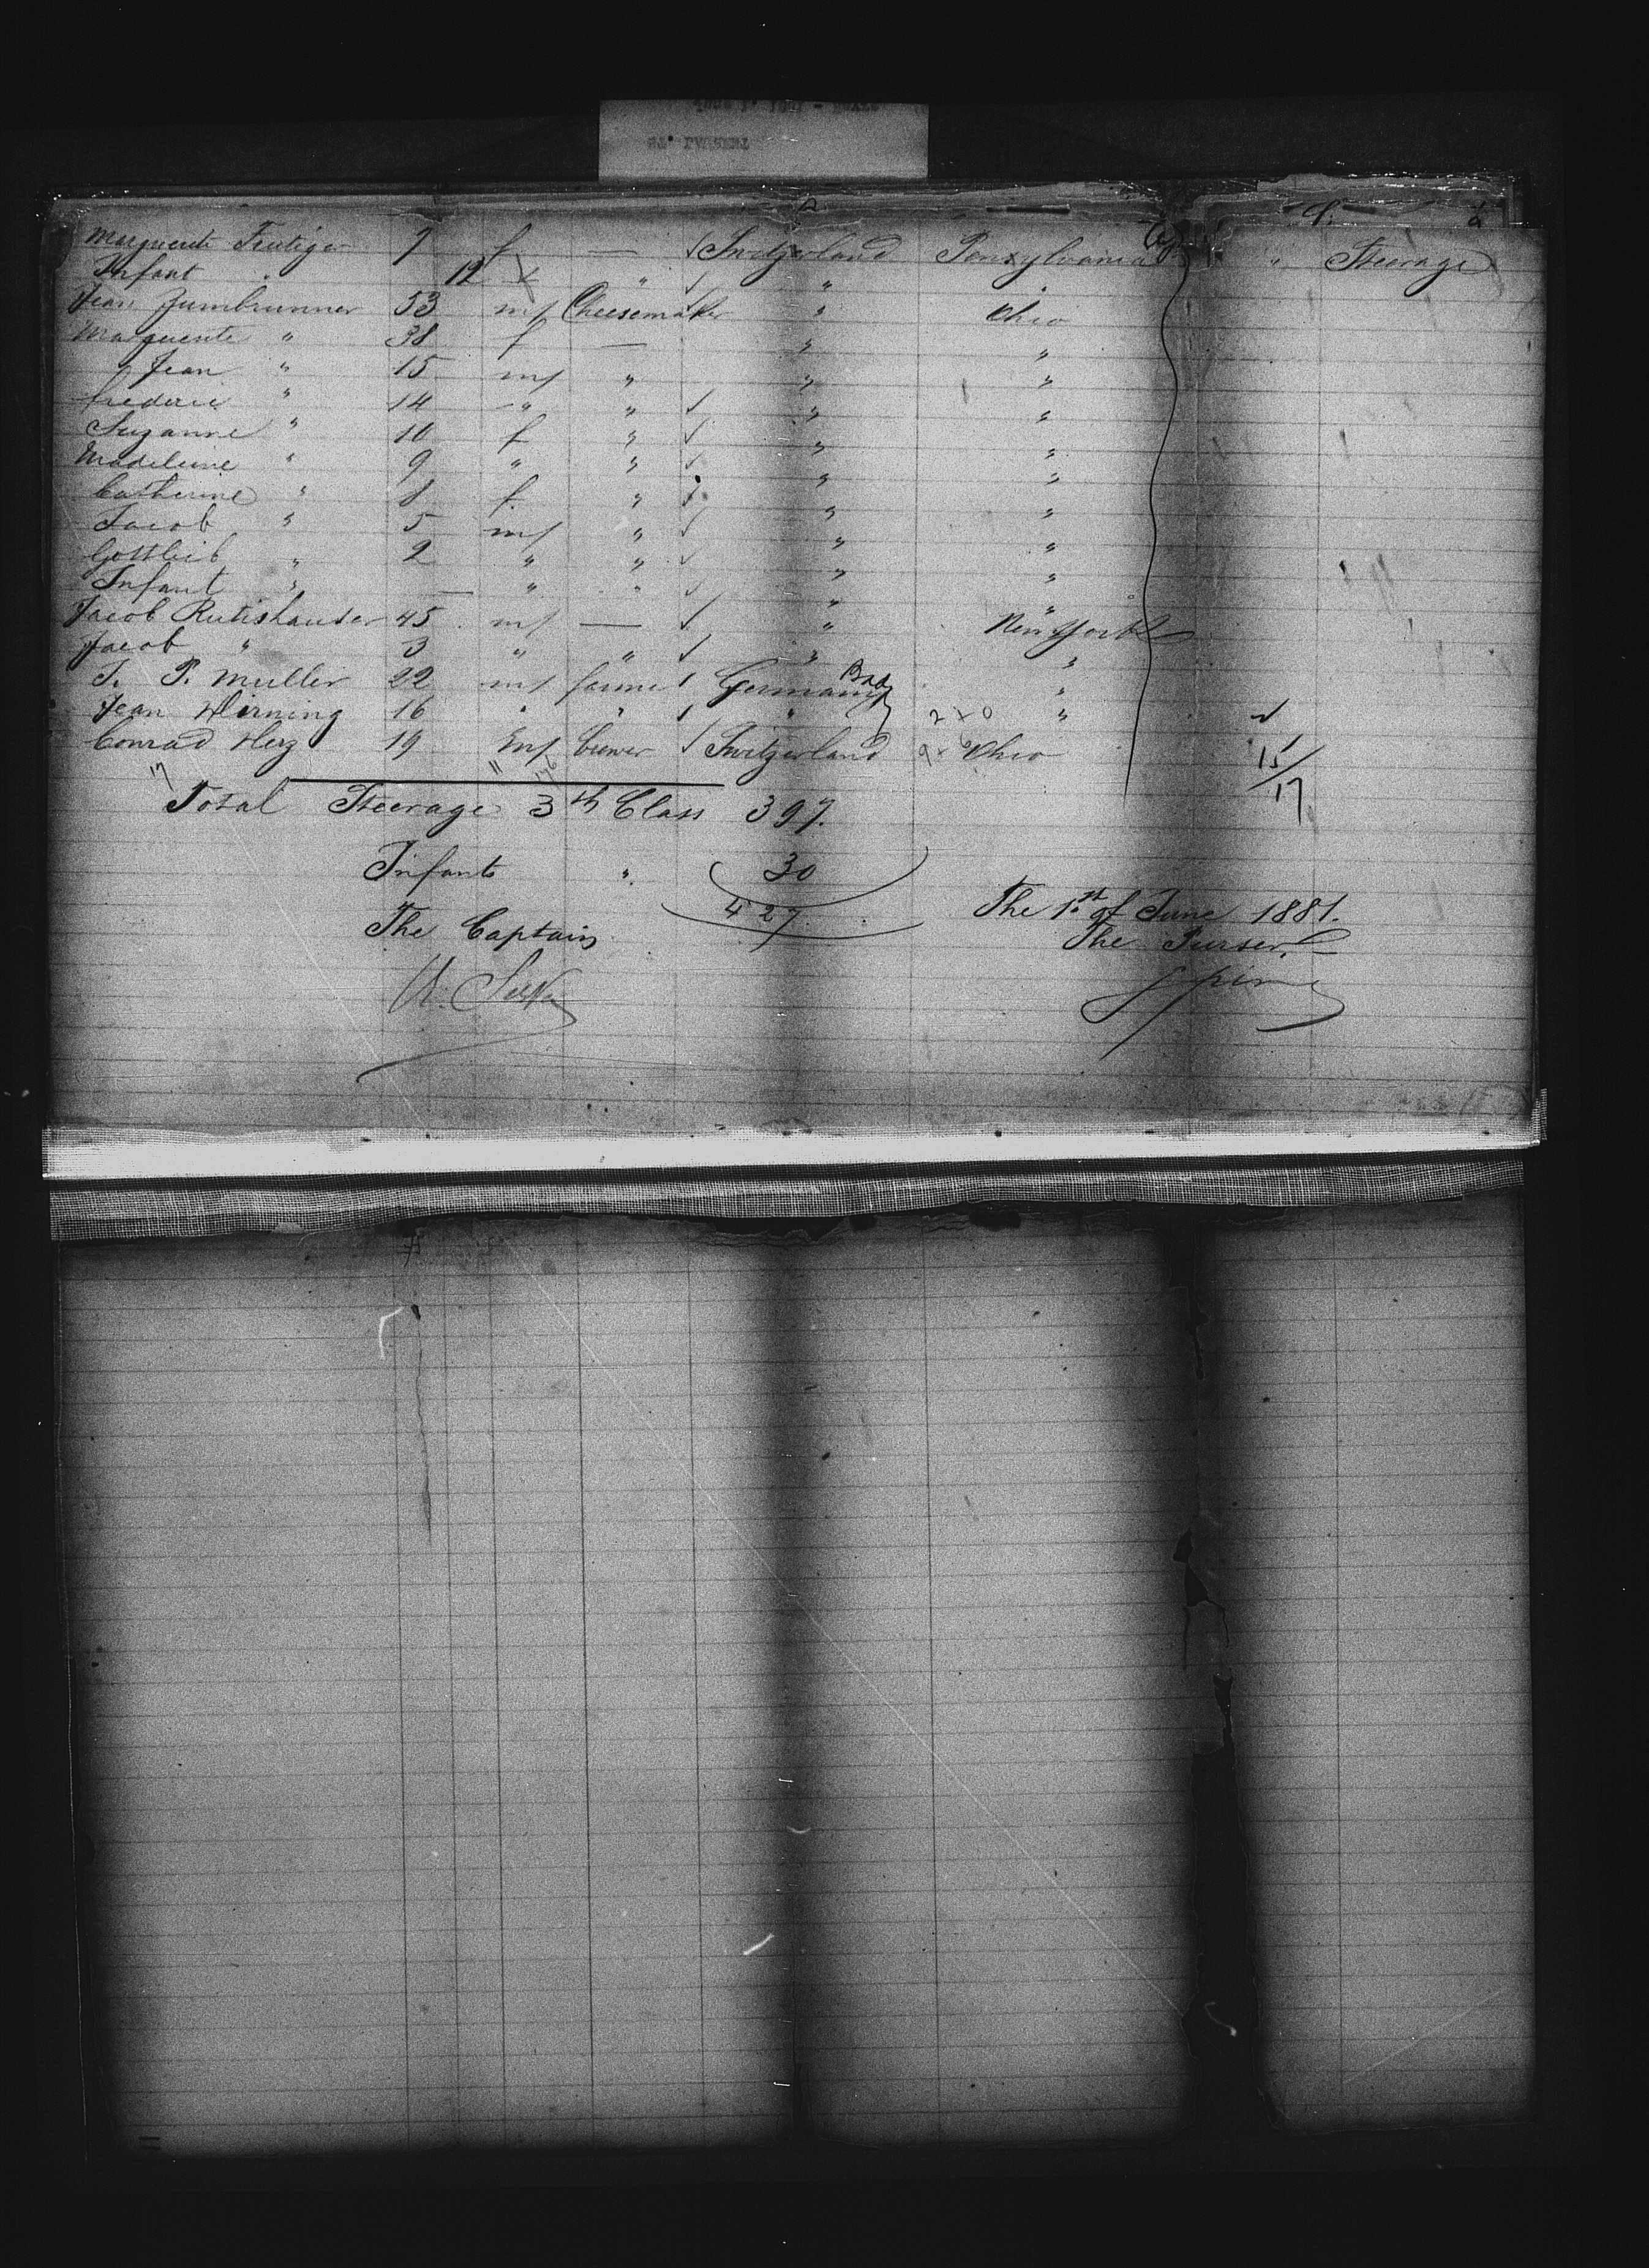 Marguerite Frutiger 7 f — ✓ Switzerland Pensylvania " Steerage
Infant " 12 " ✓ "
Jean Zumbrunner 53 m/ Cheesemaker " Ohio
Marguerite " 38 f — " "
Jean " 15 m/ " " "
frederic " 14 " " ✓ " "
Suzanne " 10 f " ✓ " "
Madeleine " 9 " " ✓ " "
Catherine " 8 f " ✓ " "
Jacob " 5 m/ " ✓ " "
Gottlieb " 2 " " ✓ " "
Infant " — " " ✓ " "
Jacob Rutishauser 45 m/ — ✓ " New York
Jacob " 3 " " ✓ " "
J. P. Muller 22 m/ farmer ✓ Germany Bad "
Jean Hirning 16 " " ✓ " 2 + 0 "
Conrad Herz 19 m/ brewer ✓ Switzerland Ohio 15/17
17
Total Steerage 3th Class 397.
Infants " 30
427
The 1st of June 1881.
The Captain The Purser,